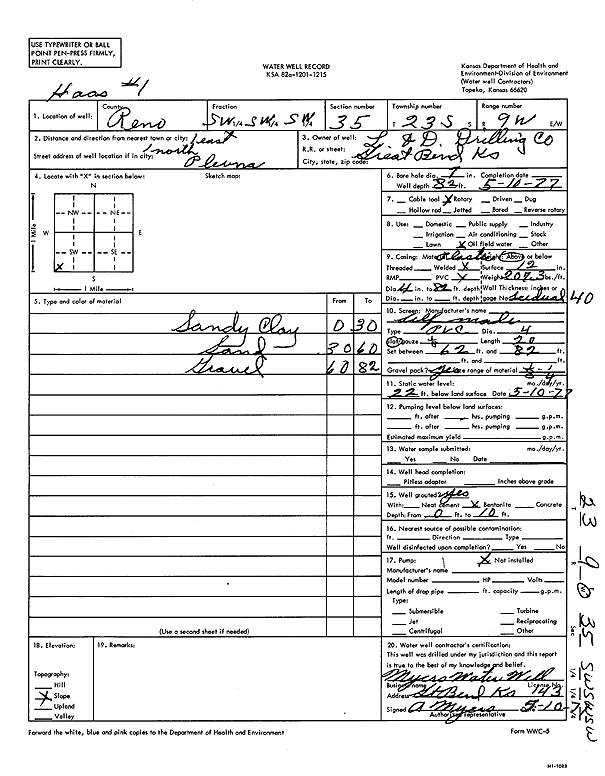 USE TYPEWRITER OR BALL
POINT PEN-PRESS FIRMLY,
PRINT CLEARLY.
WATER WELL RECORD
KSA 82a-1201-1215
Kansas Department of Health and
Environment-Division of Environment
(Water well Contractors)
Topeka, Kansas 66620
Haas #1
1. Location of well: County Reno Fraction SW 1/4 SW 1/4 SW 1/4 Section number 35 Township number T 23 S S Range number R 9 W E/W
2. Distance and direction from nearest town or city: 1 east
1 north
Street address of well location if in city: Plevna
3. Owner of well: L & D Drilling Co
R.R. or street:
City, state, zip code: Great Bend, Ks
4. Locate with "X" in section below: Sketch map:
N
NW NE
W E
SW SE
X
S
1 Mile
1 Mile
5. Type and color of material From To
Sandy Clay 0 30
Sand 30 60
Gravel 60 82
(Use a second sheet if needed)
6. Bore hole dia. in. Completion date
Well depth 82 ft. 5-10-77
7. Cable tool X Rotary Driven Dug
Hollow rod Jetted Bored Reverse rotary
8. Use: Domestic Public supply Industry
Irrigation Air conditioning Stock
Lawn X Oil field water Other
9. Casing: Material Plastic Height: Above or below
Threaded Welded X Surface 12 in.
RMP PVC X Weight lbs./ft.
Dia. 4 in. to 82 ft. depth Wall Thickness: inches or
Dia. in. to ft. depth gage No. 40
10. Screen: Manufacturer's name
Self made
Type PVC Dia. 4
Slot/gauze Length 20
Set between 62 ft. and 82 ft.
ft. and ft.
Gravel pack? yes Size range of material
11. Static water level: mo./day/yr.
22 ft. below land surface Date 5-10-77
12. Pumping level below land surfaces:
ft. after hrs. pumping g.p.m.
ft. after hrs. pumping g.p.m.
Estimated maximum yield g.p.m.
13. Water sample submitted: mo./day/yr.
Yes No Date
14. Well head completion:
Pitless adapter Inches above grade
15. Well grouted? yes
With: Neat cement X Bentonite Concrete
Depth: From 0 ft. to 10 ft.
16. Nearest source of possible contamination:
ft. Direction Type
Well disinfected upon completion? Yes No
17. Pump: X Not installed
Manufacturer's name
Model number HP Volts
Length of drop pipe ft. capacity g.p.m.
Type:
Submersible Turbine
Jet Reciprocating
Centrifugal Other
18. Elevation:
Topography:
Hill
X Slope
Upland
Valley
19. Remarks:
20. Water well contractor's certification:
This well was drilled under my jurisdiction and this report
is true to the best of my knowledge and belief.
Myers Water Well
Business name License No. 143
Address Gt Bend Ks
Signed A Myers
Authorized representative
Forward the white, blue and pink copies to the Department of Health and Environment
Form WWC-5